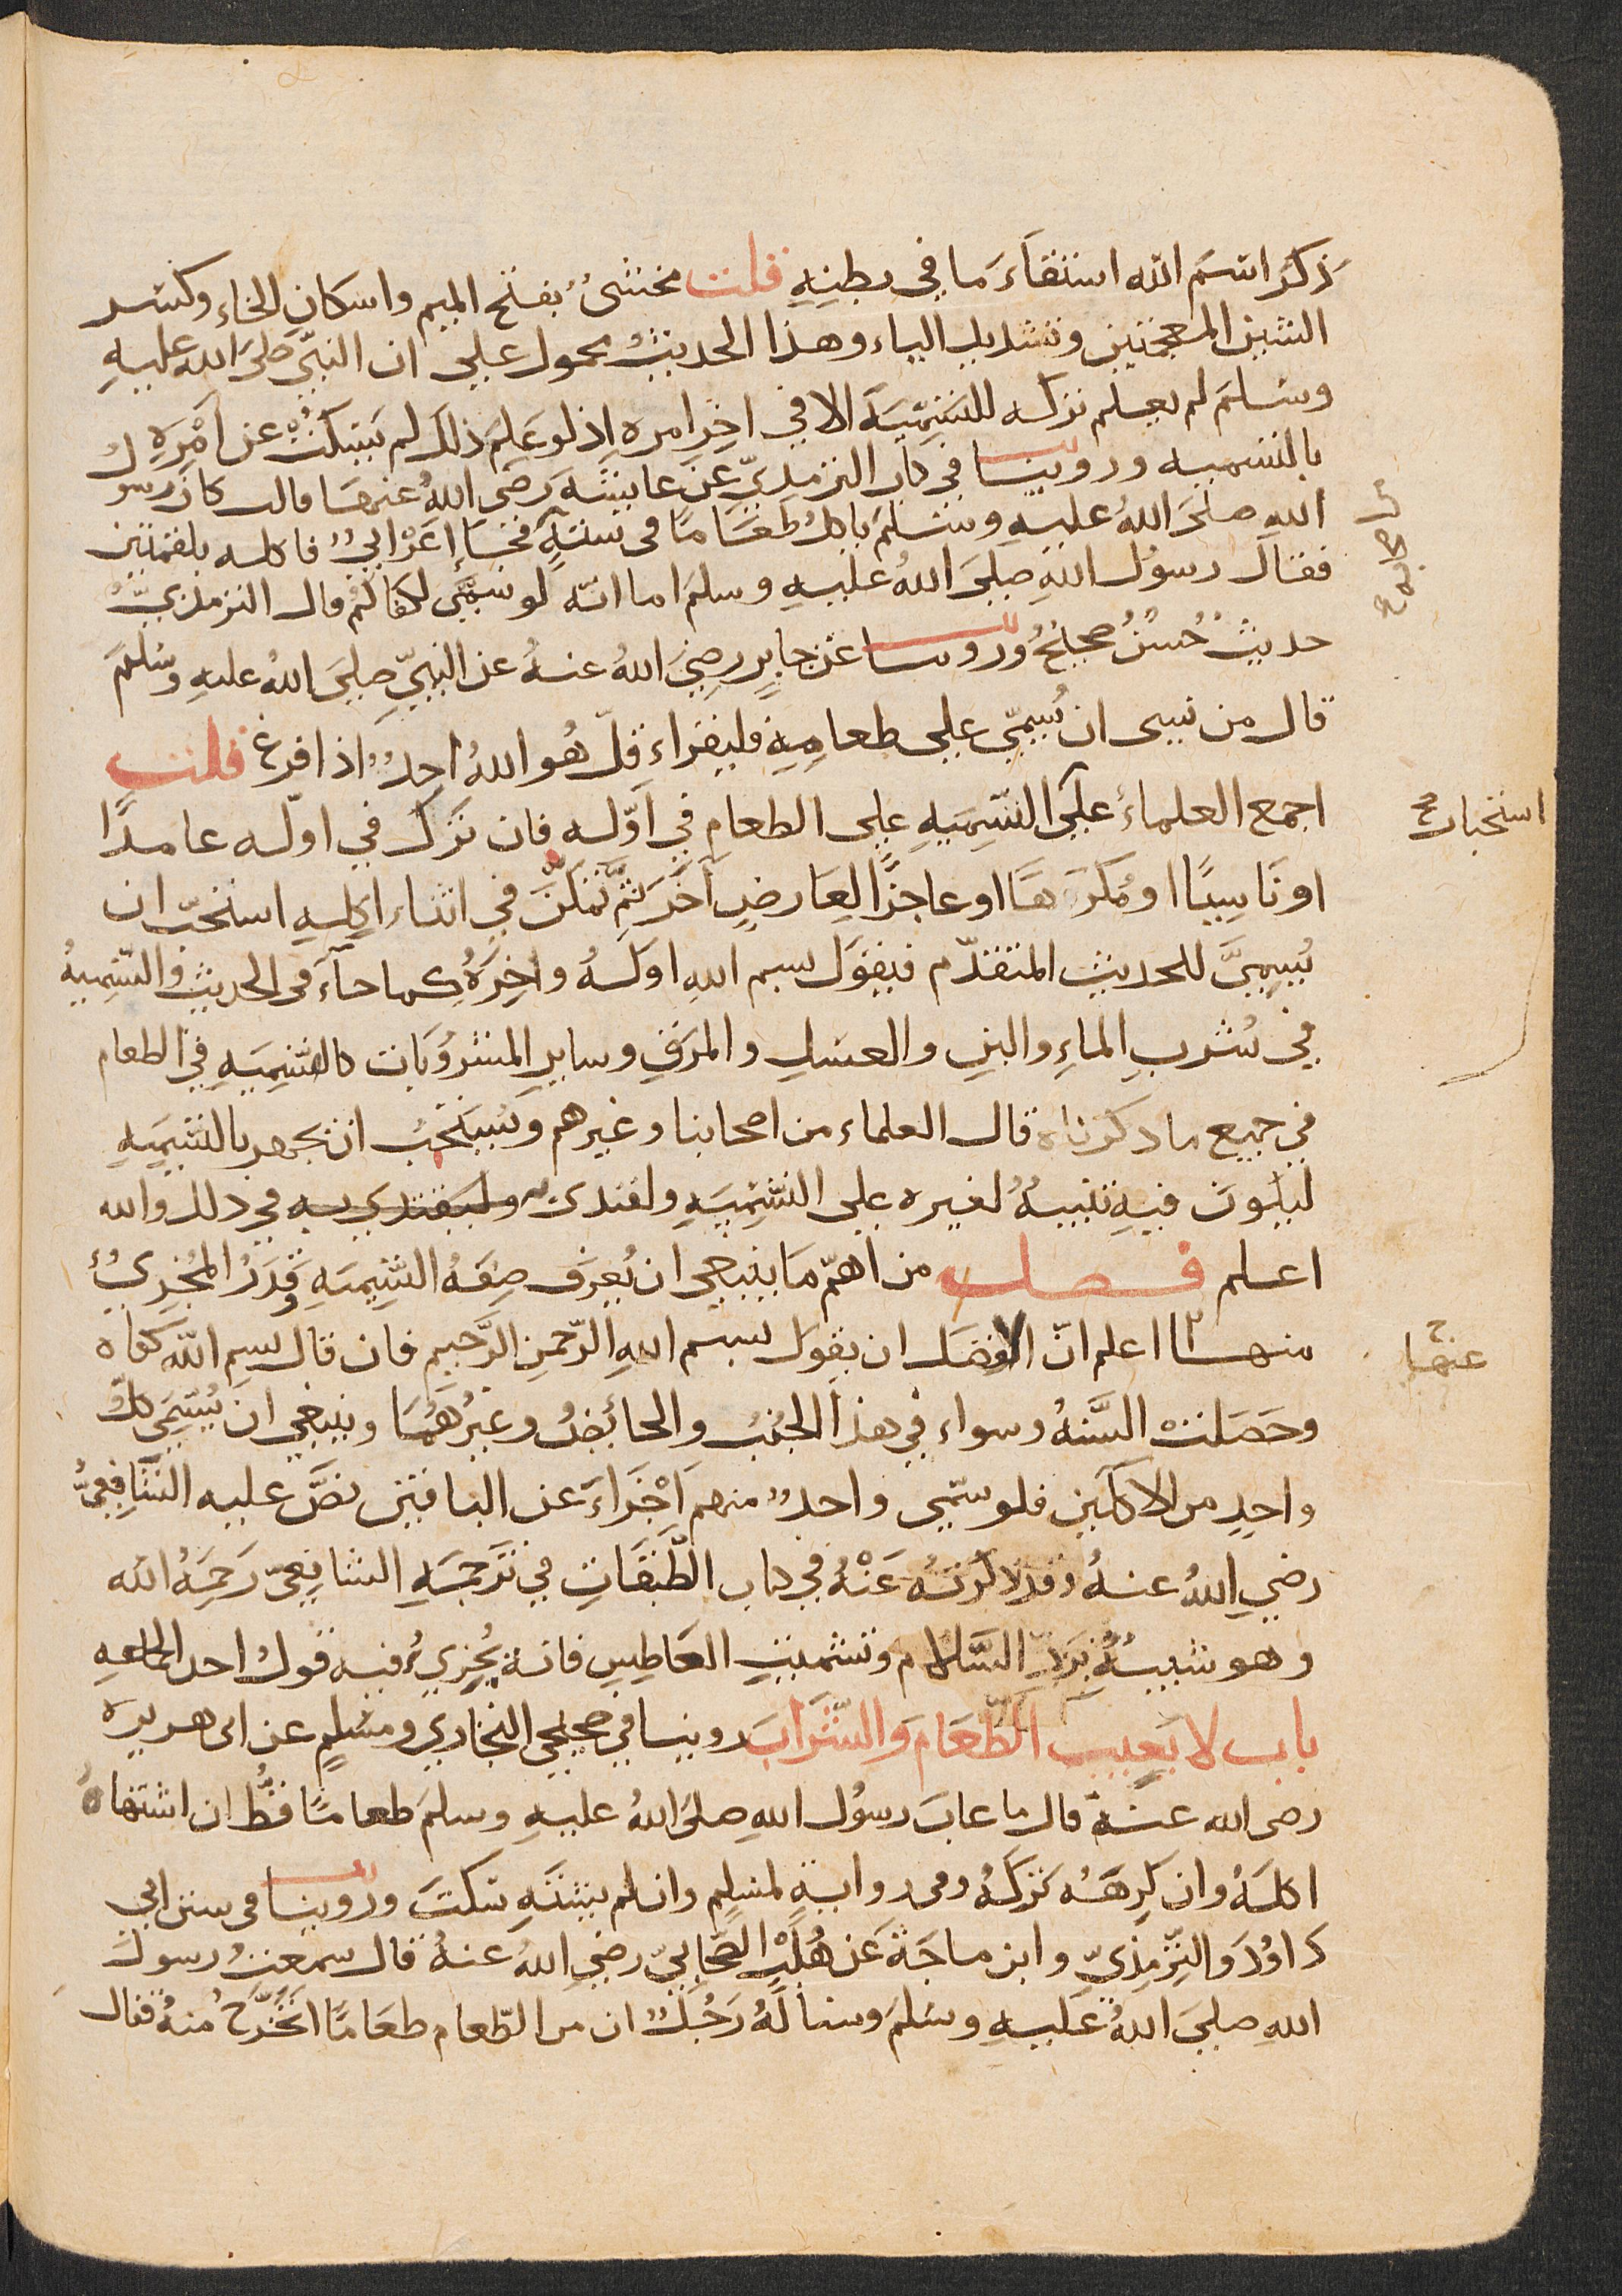 ذكر اسم الله استقاء ما في بطنه قلت مخشى بفتح الميم واسكان الخاء وكسر
الشين المعجمتين وتشديد الياء وهذا الحديث محمول على ان النبي صلى الله عليه
وسلم لم يعلم تركه للتسمية الا في اخر امره اذ لو علم ذلك لم يسكت عن امره
بالتسميه وروينا في كتاب الترمذي عن عايشة رضي الله عنها قالت كان رسول
الله صلى الله عليه وسلم ياكل طعاما في ستة فجاء اعرابي فاكله بلقمتين
فقال رسول الله صلى الله عليه وسلم اما انه لو سمى لكفاكم قال الترمذي
حديث حسن صحيح وروينا عن جابر رضي الله عنه عن النبي صلى الله عليه وسلم
قال من نسى ان يسمي على طعامه فليقراء قل هو الله احد اذا فرغ قلت
اجمع العلماء على التسميه على الطعام في اوله فان ترك في اوله عامدا
استحباب
او ناسيا او مكرها او عاجزا لعارض آخر ثم تمكن في اثناء اكله استحب ان
يسمي للحديث المتقدم فيقول بسم الله اوله واخره كما جآء في الحديث والتسمية
في شرب الماء والبن والعسل والمرق وساير المشروبات كالتسميه في الطعام
في جميع ما ذكرناه قال العلماء من اصحابنا وغيرهم ويستحب ان يجهر بالتسميه
ليكون فيه تنبيه لغيره على التسميه ولقتدى وليقتدي به في ذلك والله
اعلم فصل من اهم ما ينبغي ان يعرف صفة التسميه وقدر المجزئ
منها اعلم ان الافضل ان يقول بسم الله الرحمن الرحيم فان قال بسم الله كفاه
عنها
وحصلت السنه وسواء في هذا الجنب والحائض وغيرهما وينبغي ان يسمي كل
واحد من الاكلين فلو سمى واحد منهم اجزاء عن الباقين نص عليه الشافعي
رضي الله عنه وقد ذكرته عنه في كتاب الطبقات في ترجمة الشافعي رحمه الله
وهو شبيه برد السلام وتشميت العاطس فانه يجزي فيه قول احد الجماعه
باب لا يعيب الطعام والشراب روينا في صحيحي البخاري ومسلم عن ابى هريره
رضى الله عنه قال ما عاب رسول الله صلى الله عليه وسلم طعاما قط ان اشتهاه
اكله وان كرهه تركه وفى رواية لمسلم وان لم يشته سكت وروينا في سنن ابي
داود والترمذي وابن ماجة عن هلب الصحابي رضي الله عنه قال سمعت رسول
الله صلى الله عليه وسلم وساله رجل ان من الطعام طعاما اتحرج منه فقال